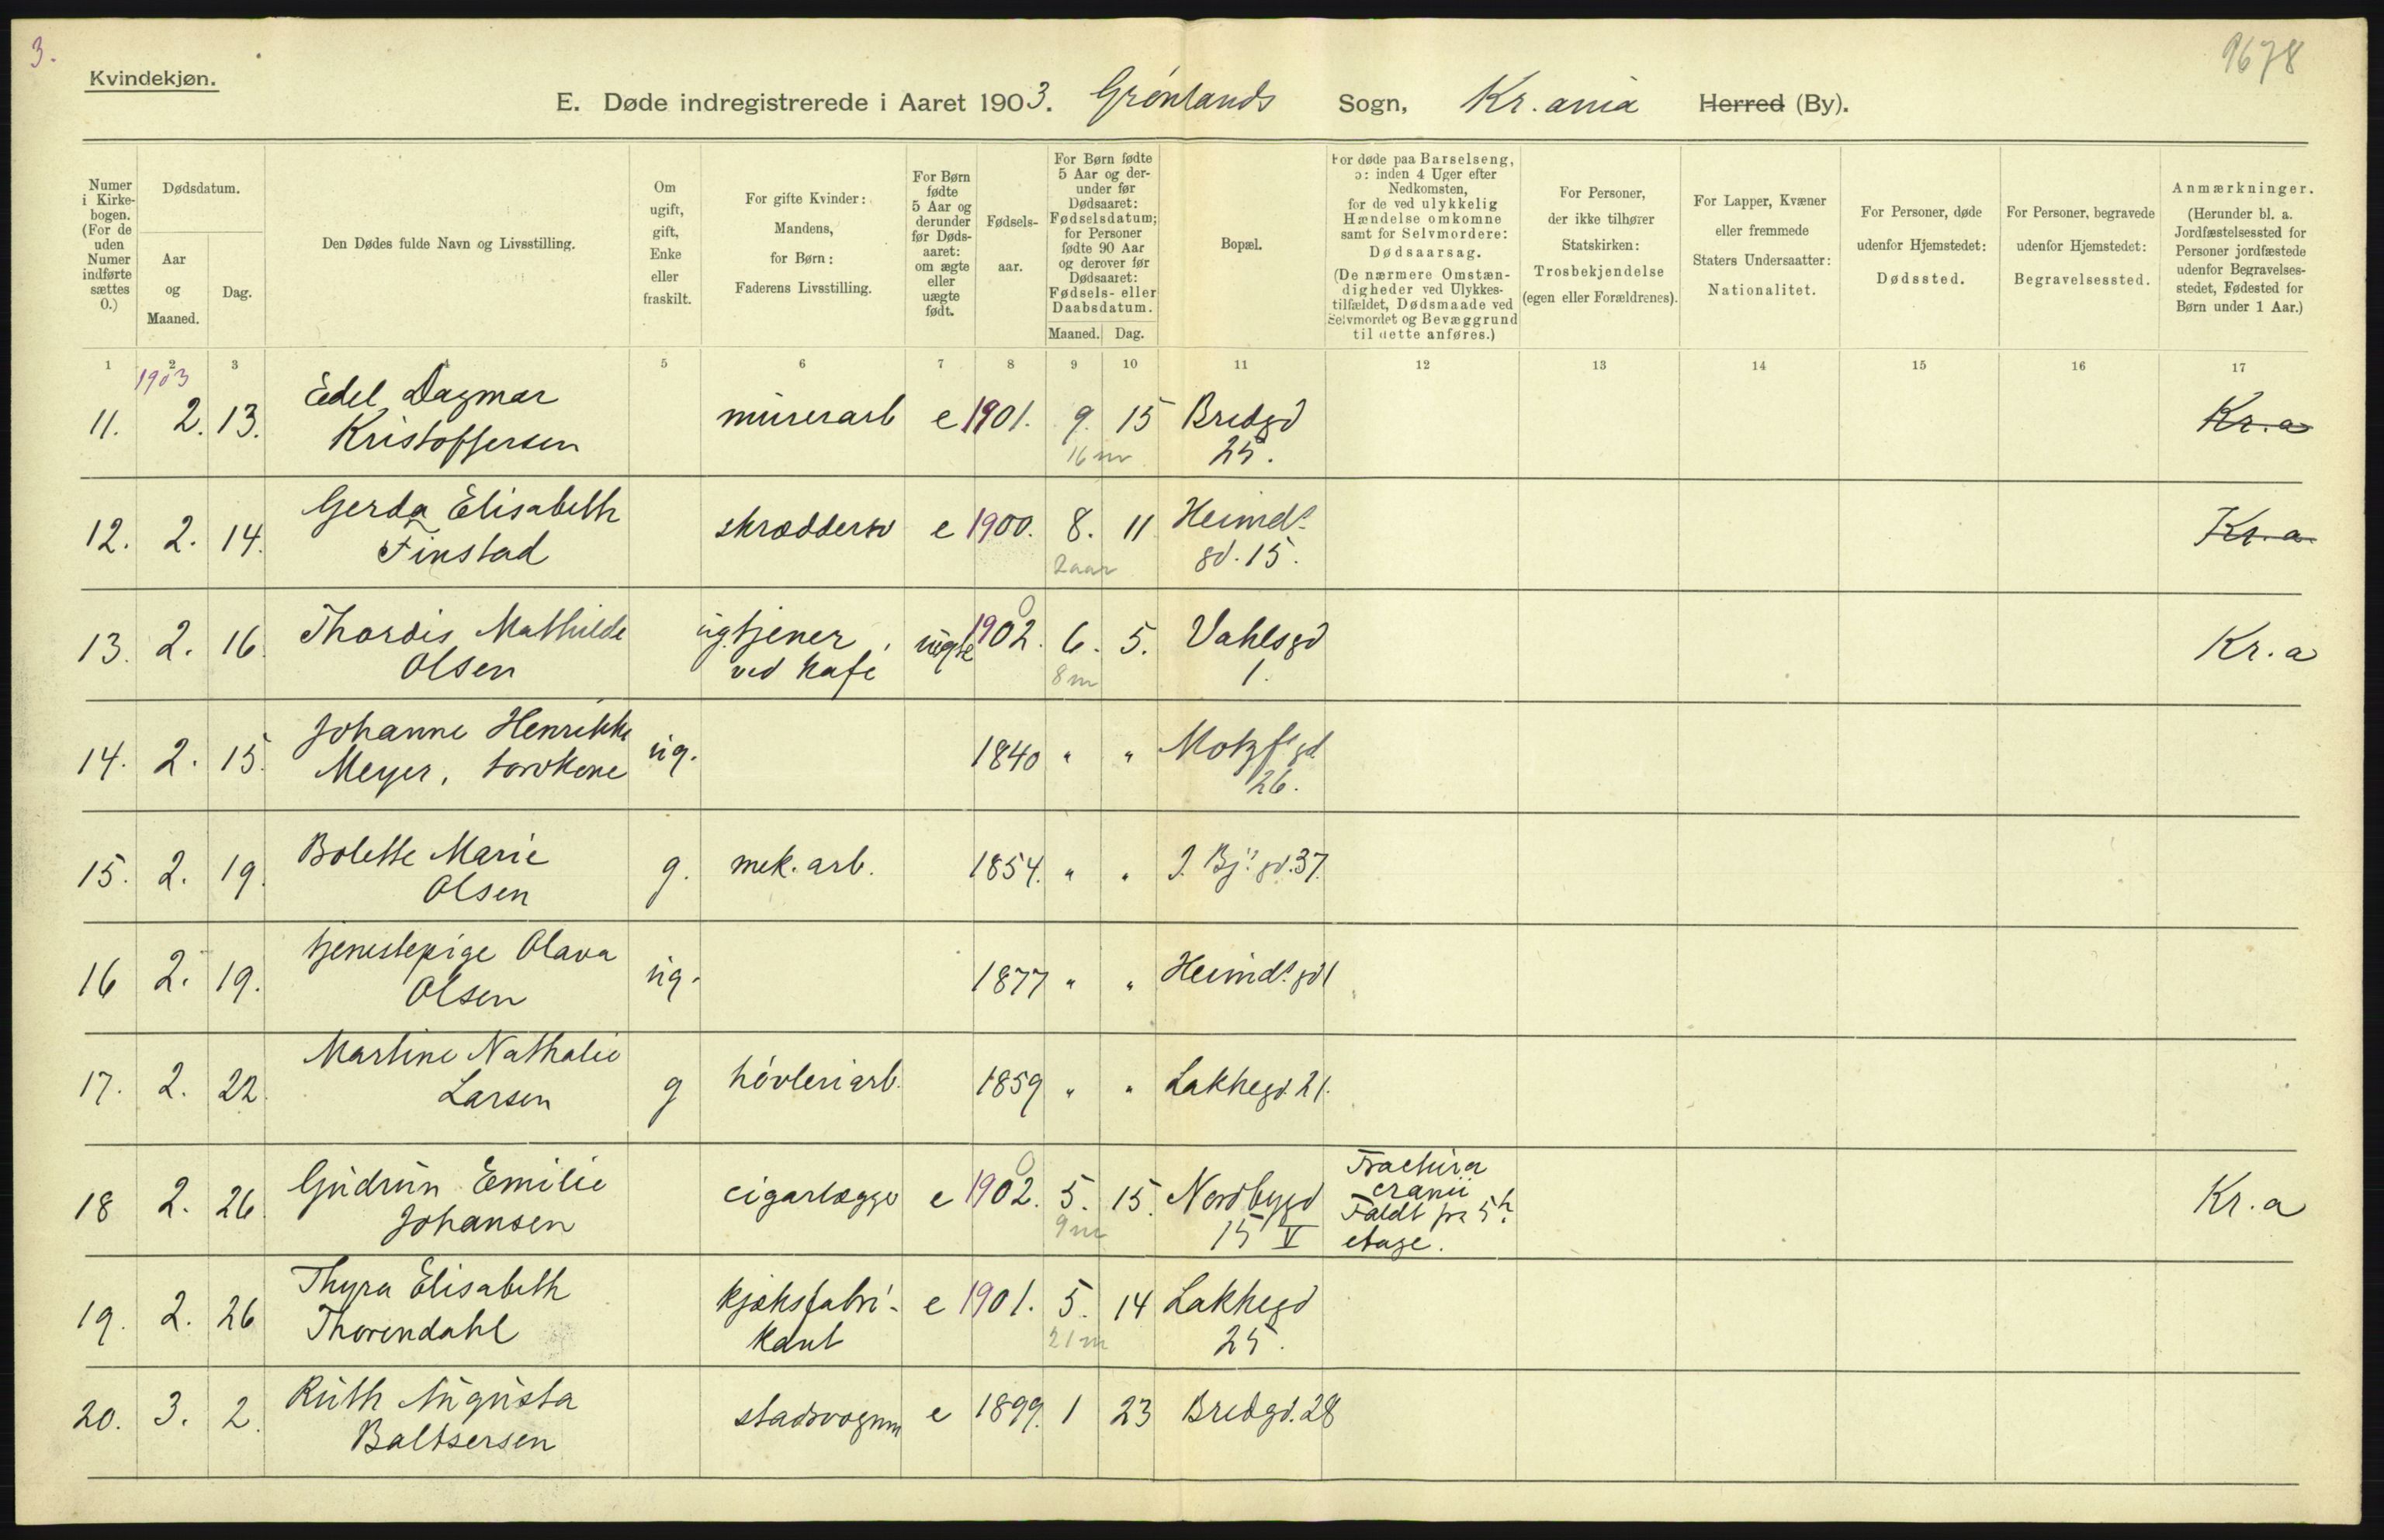 3.
9678
Kvindekjøn.
E. Døde indregistrerede i Aaret 1903. Grønlands Sogn, Kr.ania Herred (By).
Numer i Kirke-bogen. (For de uden Numer indførte sættes 0.)
Dødsdatum.
Aar og Maaned.
Dag.
Den Dødes fulde Navn og Livsstilling.
Om ugift, gift, Enke eller fraskilt.
For gifte Kvinder: Mandens, for Børn: Faderens Livsstilling.
For Børn fødte 5 Aar og derunder før Døds-aaret: om ægte eller uægte født.
Fødsels-aar.
For Børn fødte 5 Aar og der-under før Dødsaaret: Fødselsdatum; for Personer fødte 90 Aar og derover før Dødsaaret: Fødsels- eller Daabsdatum.
Maaned. Dag.
Bopæl.
For døde paa Barselseng, ɔ: inden 4 Uger efter Nedkomsten, for de ved ulykkelig Hændelse omkomne samt for Selvmordere: Dødsaarsag. (De nærmere Omstæn-digheder ved Ulykkes-tilfældet, Dødsmaade ved Selvmordet og Bevæggrund til dette anføres.)
For Personer, der ikke tilhører Statskirken: Trosbekjendelse (egen eller Forældrenes).
For Lapper, Kvæner eller fremmede Staters Undersaatter: Nationalitet.
For Personer, døde udenfor Hjemstedet: Dødssted.
For Personer, begravede udenfor Hjemstedet: Begravelsessted.
Anmærkninger. (Herunder bl. a. Jordfæstelsessted for Personer jordfæstede udenfor Begravelses-stedet, Fødested for Børn under 1 Aar.)
1 2 3 4 5 6 7 8 9 10 11 12 13 14 15 16 17
1903
11. 2. 13. Edel Dagmar Kristoffersen murerarb e 1901. 9. 15 Bredgd 25. Kr.a
16 m
12. 2. 14. Gerda Elisabeth Finstad skræddersv e 1900. 8. 11 Heimdls gd. 15. Kr.a
2 aar
13. 2. 16. Thordis Mathilde Olsen ug. tjener ved kafé uægte 1902. 6. 5. Vahlsgd 1. Kr.a
8 m
14. 2. 15. Johanne Henrikke Meyer, torvkone ug. 1840 " " Motzfs gd 26.
15. 2. 19. Bolette Marie Olsen g. mek. arb. 1854. " " J. Bjs gd. 37.
16 2. 19. tjenestepige Olava Olsen ug. 1877 " " Heimds gd 1
17. 2. 22. Martine Nathalie Larsen g høvleriarb. 1859 " " Lakkegd. 21.
18 2. 26. Gudrun Emilie Johansen cigarlægge e 1902. 5. 15. Nordbygd 15 V Fractura cranii Faldt fra 5te etage. Kr.a
9 m
19. 2. 26 Thyra Elisabeth Thorendahl kjæksfabri-kant e 1901. 5. 14 Lakkegd 25.
21 m
20. 3. 2. Ruth Augusta Baltsersen stadsvognm e 1899. 1 23 Bredgd. 28